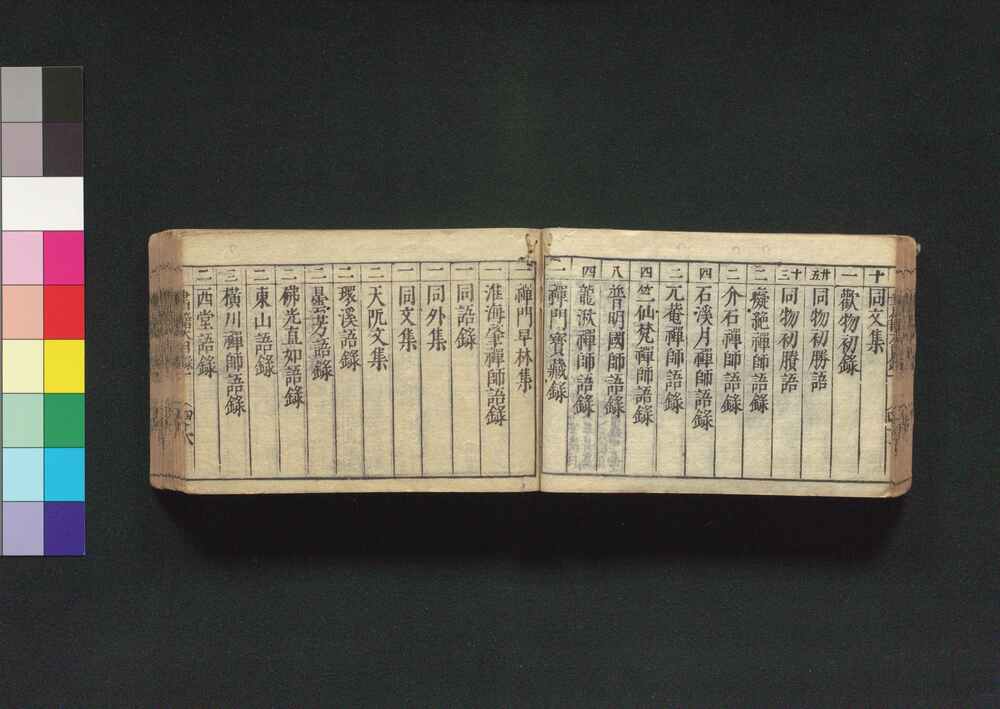 十 同文集
一 歡物初録
廿五 同物初勝語
十三 同物初賸語
二 癡絶禪師語録
二 介石禪師語録
四 石溪月禪師語録
二 兀菴禪師語録
四 竺仙梵禪師語録
八 普明國師語録
四 龍湫禪師語録
一 禪門寶藏録
禪門早林集
一 淮海肇禪師語録
一 同語録
一 同外集
一 同文集
二 大阮文集
二 環溪語録
二 曇芳語録
二 佛光直如語録
二 東山語録
三 橫川禪師語録
二 西堂語録